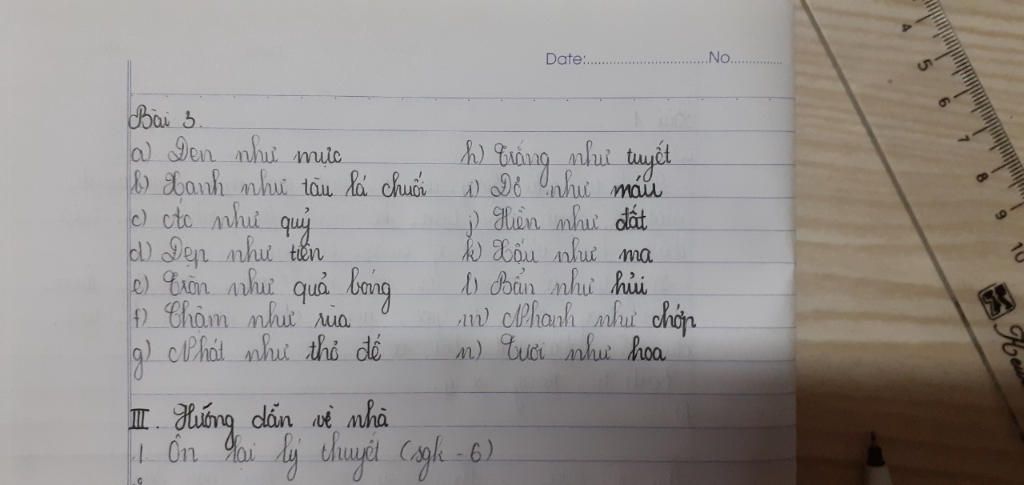 Date:..............................No.............
Bài 3.
a) Đen như mực
h) Trắng như tuyết
b) Xanh như tàu lá chuối
i) Đỏ như máu
c) Ác như quỷ
j) Hiền như đất
d) Đẹp như tiên
k) Xấu như ma
e) Tròn như quả bóng
l) Bẩn như hủi
f) Chậm như rùa
m) Nhanh như chớp
g) Nhát như thỏ đế
n) Tươi như hoa
III. Hướng dẫn về nhà
1. Ôn lại lý thuyết (sgk - 6)
4
5
6
7
8
9
10